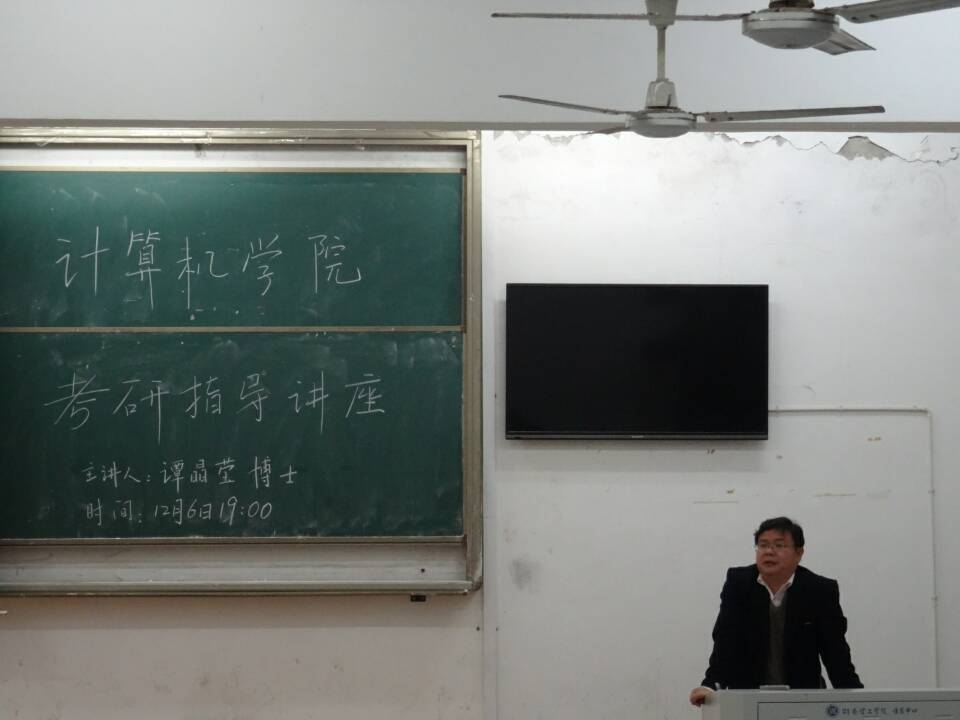 计算机学院
考研指导讲座
主讲人：谭晶莹 博士
时间：12月6日19:00